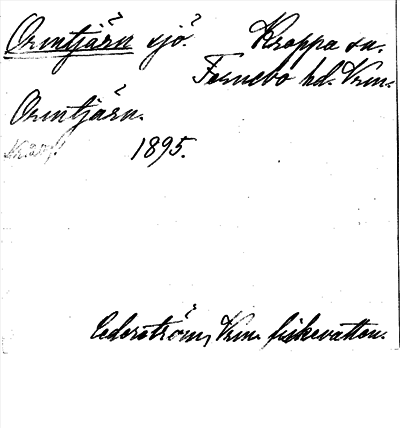 Ormtjärn sjö. Kroppa sn.
Fernebo hd. Vrm.
Ormtjärn.
1895.
Cederström, Vrm. fiskevatten.